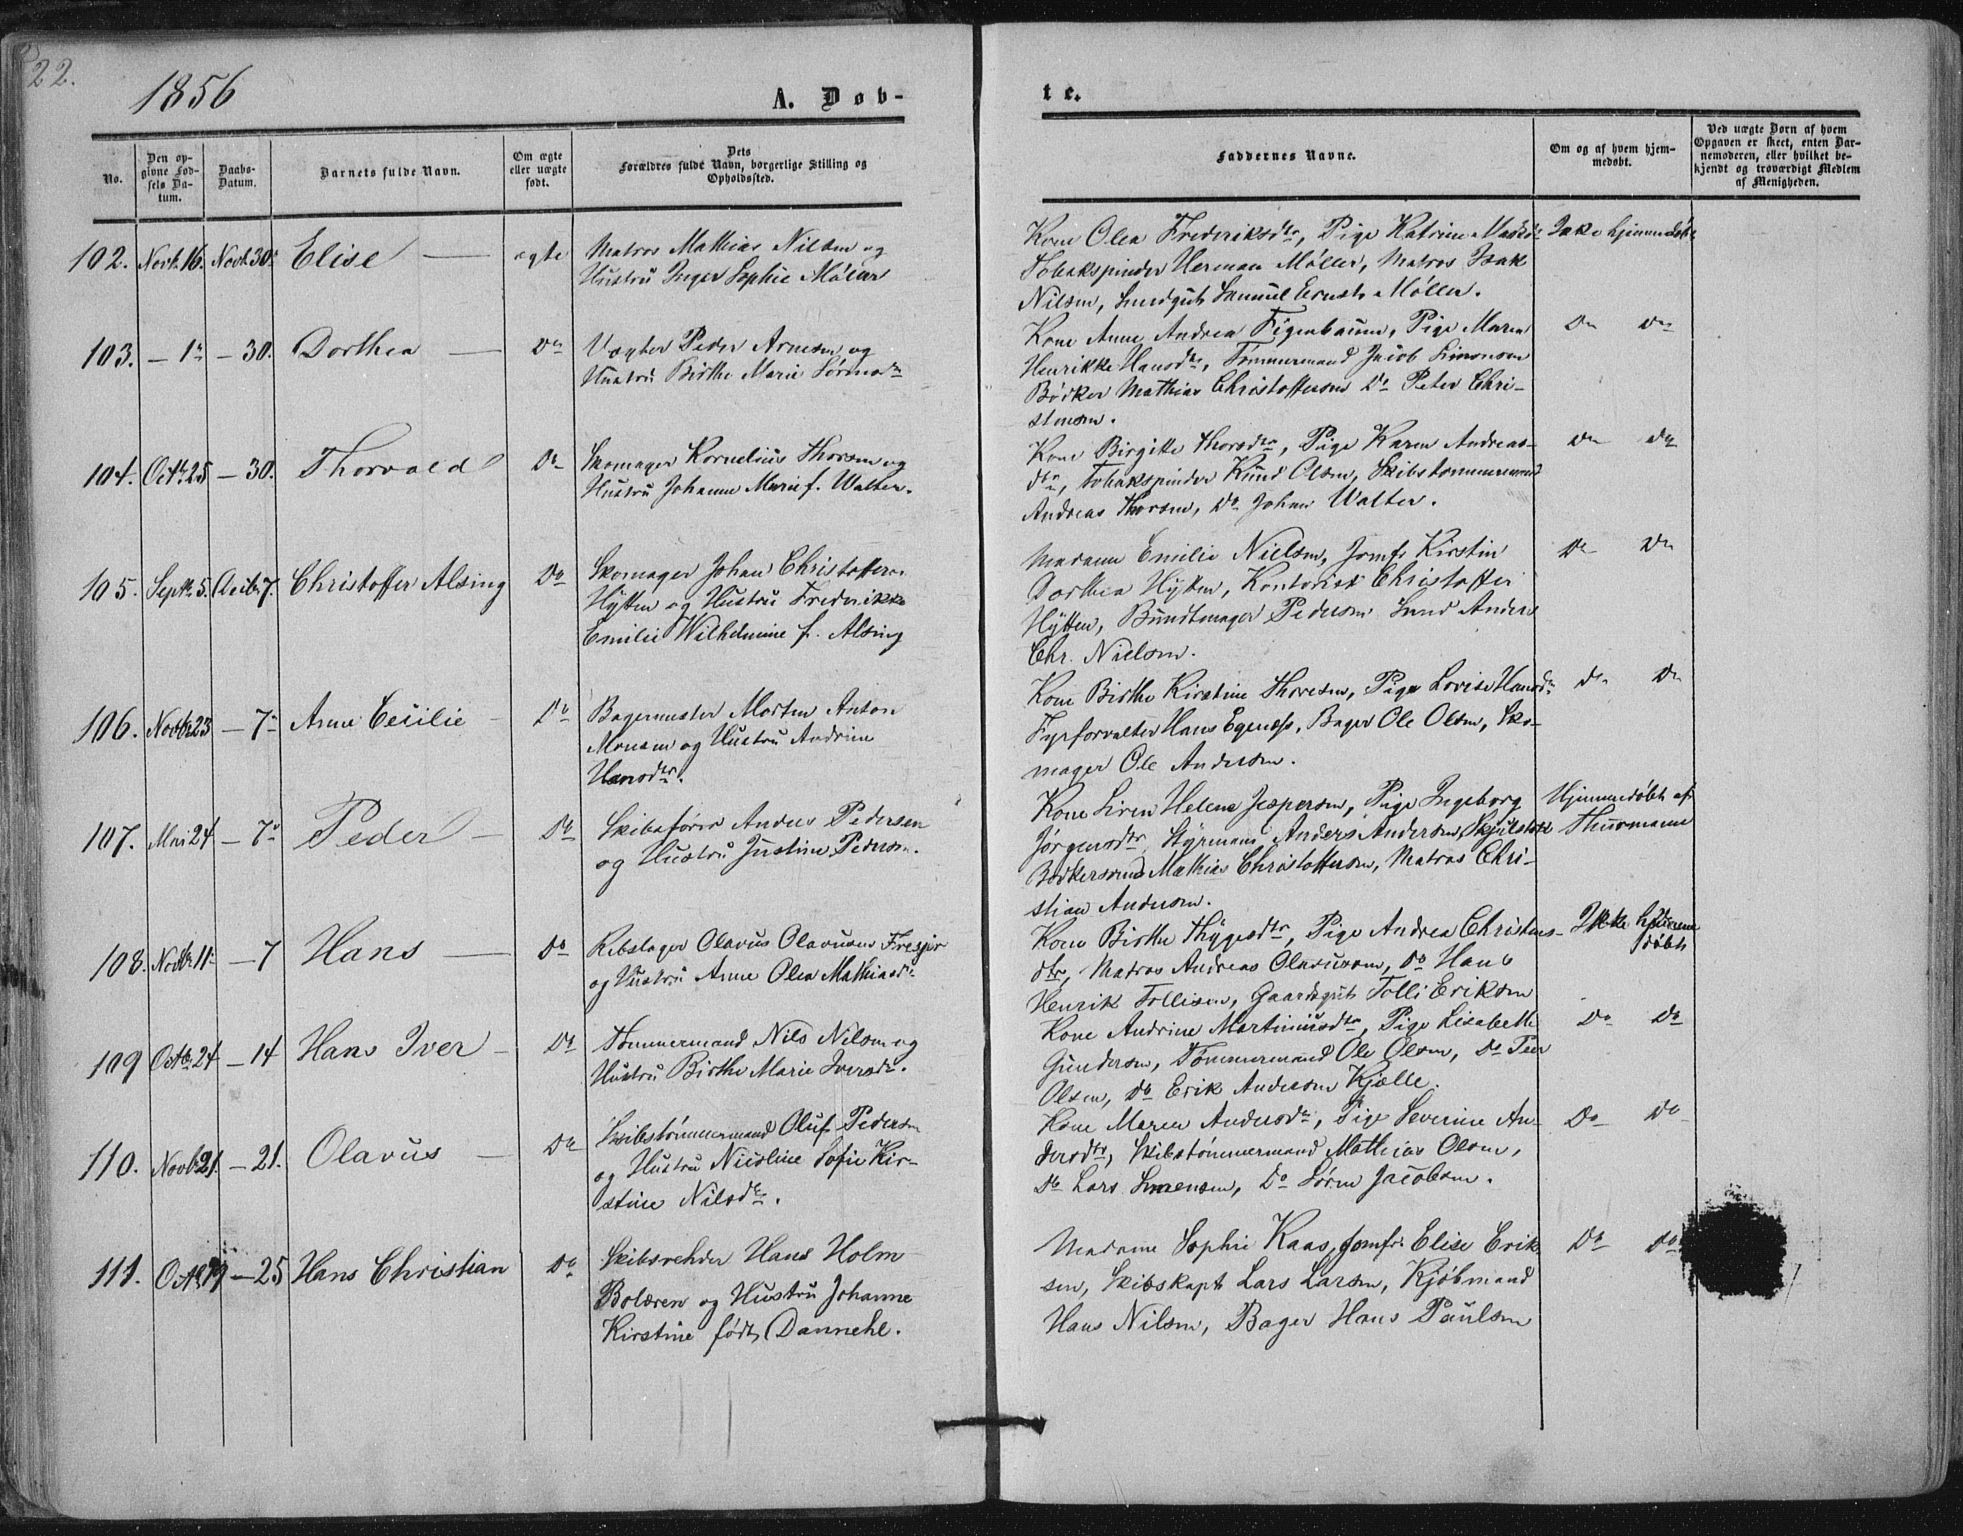 22.
1856
A. Døb-
No.
Den op-
givne Fød-
sels Da-
tum.
Daabs-
Datum.
Barnets fulde Navn.
Om ægte
eller uægte
født.
Dets
Forældres fulde Navn, borgerlige Stilling og
Opholdssted.
102. Novb. 16. Novb. 30. Elise — ægte
Matros Mathias Nilsen og
Hustru Inger Sophie Møller
103. — 1 — 30. Dorthea — Do
Vægter Peder Arnesen og
Hustru Birthe Marie
104. Octb. 25 — 30. Thorvald Do
Skomager Kornelius Thorsen og
Hustru Johanne Marie f. Walter.
105. Septb. 5. Decbr. 7. Christoffer Alsing Do
Skomager Johan Christoffer
Hytten og Hustru Fredrikke
Emilie Wilhelmine f. Alsing
106. Novbr 23 — 7 Anne Cecilie — Do
Bagermester Morten Anton
Monsen og Hustru Andrine
Hansdtr.
107. Mai 24 — 7 Peder — Do
Skibsfører Anders Pedersen
og Hustru Justine Pedersen.
108. Novbr 11 — 7 Hans — Do
Rebslager Olavus Olavusen
og Hustru Anne Olea Mathiasdr
109 Octb. 24 — 14 Hans Iver — Do
Tømmermand Nils Nilsen og
Hustru Birthe Marie Iversdr.
110. Novb. 21. — 21. Olavus — Do
Skibstømmermand Oluf Pedersen
og Hustru Nicoline Sofie Kir-
stine Nilsdtr.
111. Octb. — 25 Hans Christian Do
Skibsrehder Hans Holm
Bolæren og Hustru Johanne
Kirstine født Dannehl.
te.
Faddernes Navne.
Om og af hvem hjem-
medøbt.
Ved uægte Børn af hvem
Opgaven er skeet, enten Bar-
nemoderen, eller hvilket be-
kjendt og troværdigt Medlem
af Menigheden.
Kone Olea Fredriksdtr, Pige Katrine Ikke hjemmedøbt
Tobakspinder Herman Møller, Matros Isak
Nilsen, Samuel Ernst Møller.
Kone Anne Andrea Figenbaum, Pige Maren Do Do
Henrikke Hansdtr, Tømmermand Jacob Simonsen
Bødker Mathias Christoffersen Do Peter Chri-
stensen.
Kone Birgitte Thorsdtr, Pige Karen Andreas- Do Do
dtr, Tobakspinder Knud Olsen, Skibstømmermand
Andreas Thorsen, Do Johan Walter.
Madam Emilie Nielsen, Jomfr Kirstin Do Do
Dorthea Hytten, Kontorist Christoffer
Hytten, Bundtmager Pedersen Lund Anders
Chr. Nielsen.
Kone Birthe Kirstine Thoresen, Pige Lovise Hansdtr Do Do
Fyrforvalter Hans Egenæs, Bager Ole Olsen, Sko-
mager Ole Andersen.
Kone Siren Helene Jespersen, Pige Ingeborg Hjemmedøbt af
Jørgensdtr, Styrmand Anders Andersen Thurmann
Bødkersvend Mathias Christoffersen, Matros Chri-
stian Andersen.
Kone Birthe Thygesdtr, Pige Andrea Christens- Ikke hjemme
døbt
dtr, Matros Andreas Olavusen, Do Hans
Henrik Tollisen, Gaardsgut Tolli Eriksen
Kone Andrine Martiniusdtr, Pige Lisabeth Do Do
Gundersen, Tømmermand Ole Olsen, Do Peer
Olsen, Do Erik Andersen Kjølle.
Kone Maren Andersdtr, Pige Severine An- Do Do
dersdtr, Skibstømmermand Mathias Olsen,
Do Lars Sørensen, Do Søren Jacobsen.
Madame Sophie Kaas, Jomfr. Elise Erik- Do Do
sen, Skibskapt Lars Larsen, Kjøbmand
Hans Nilsen, Bager Hans Paulsen